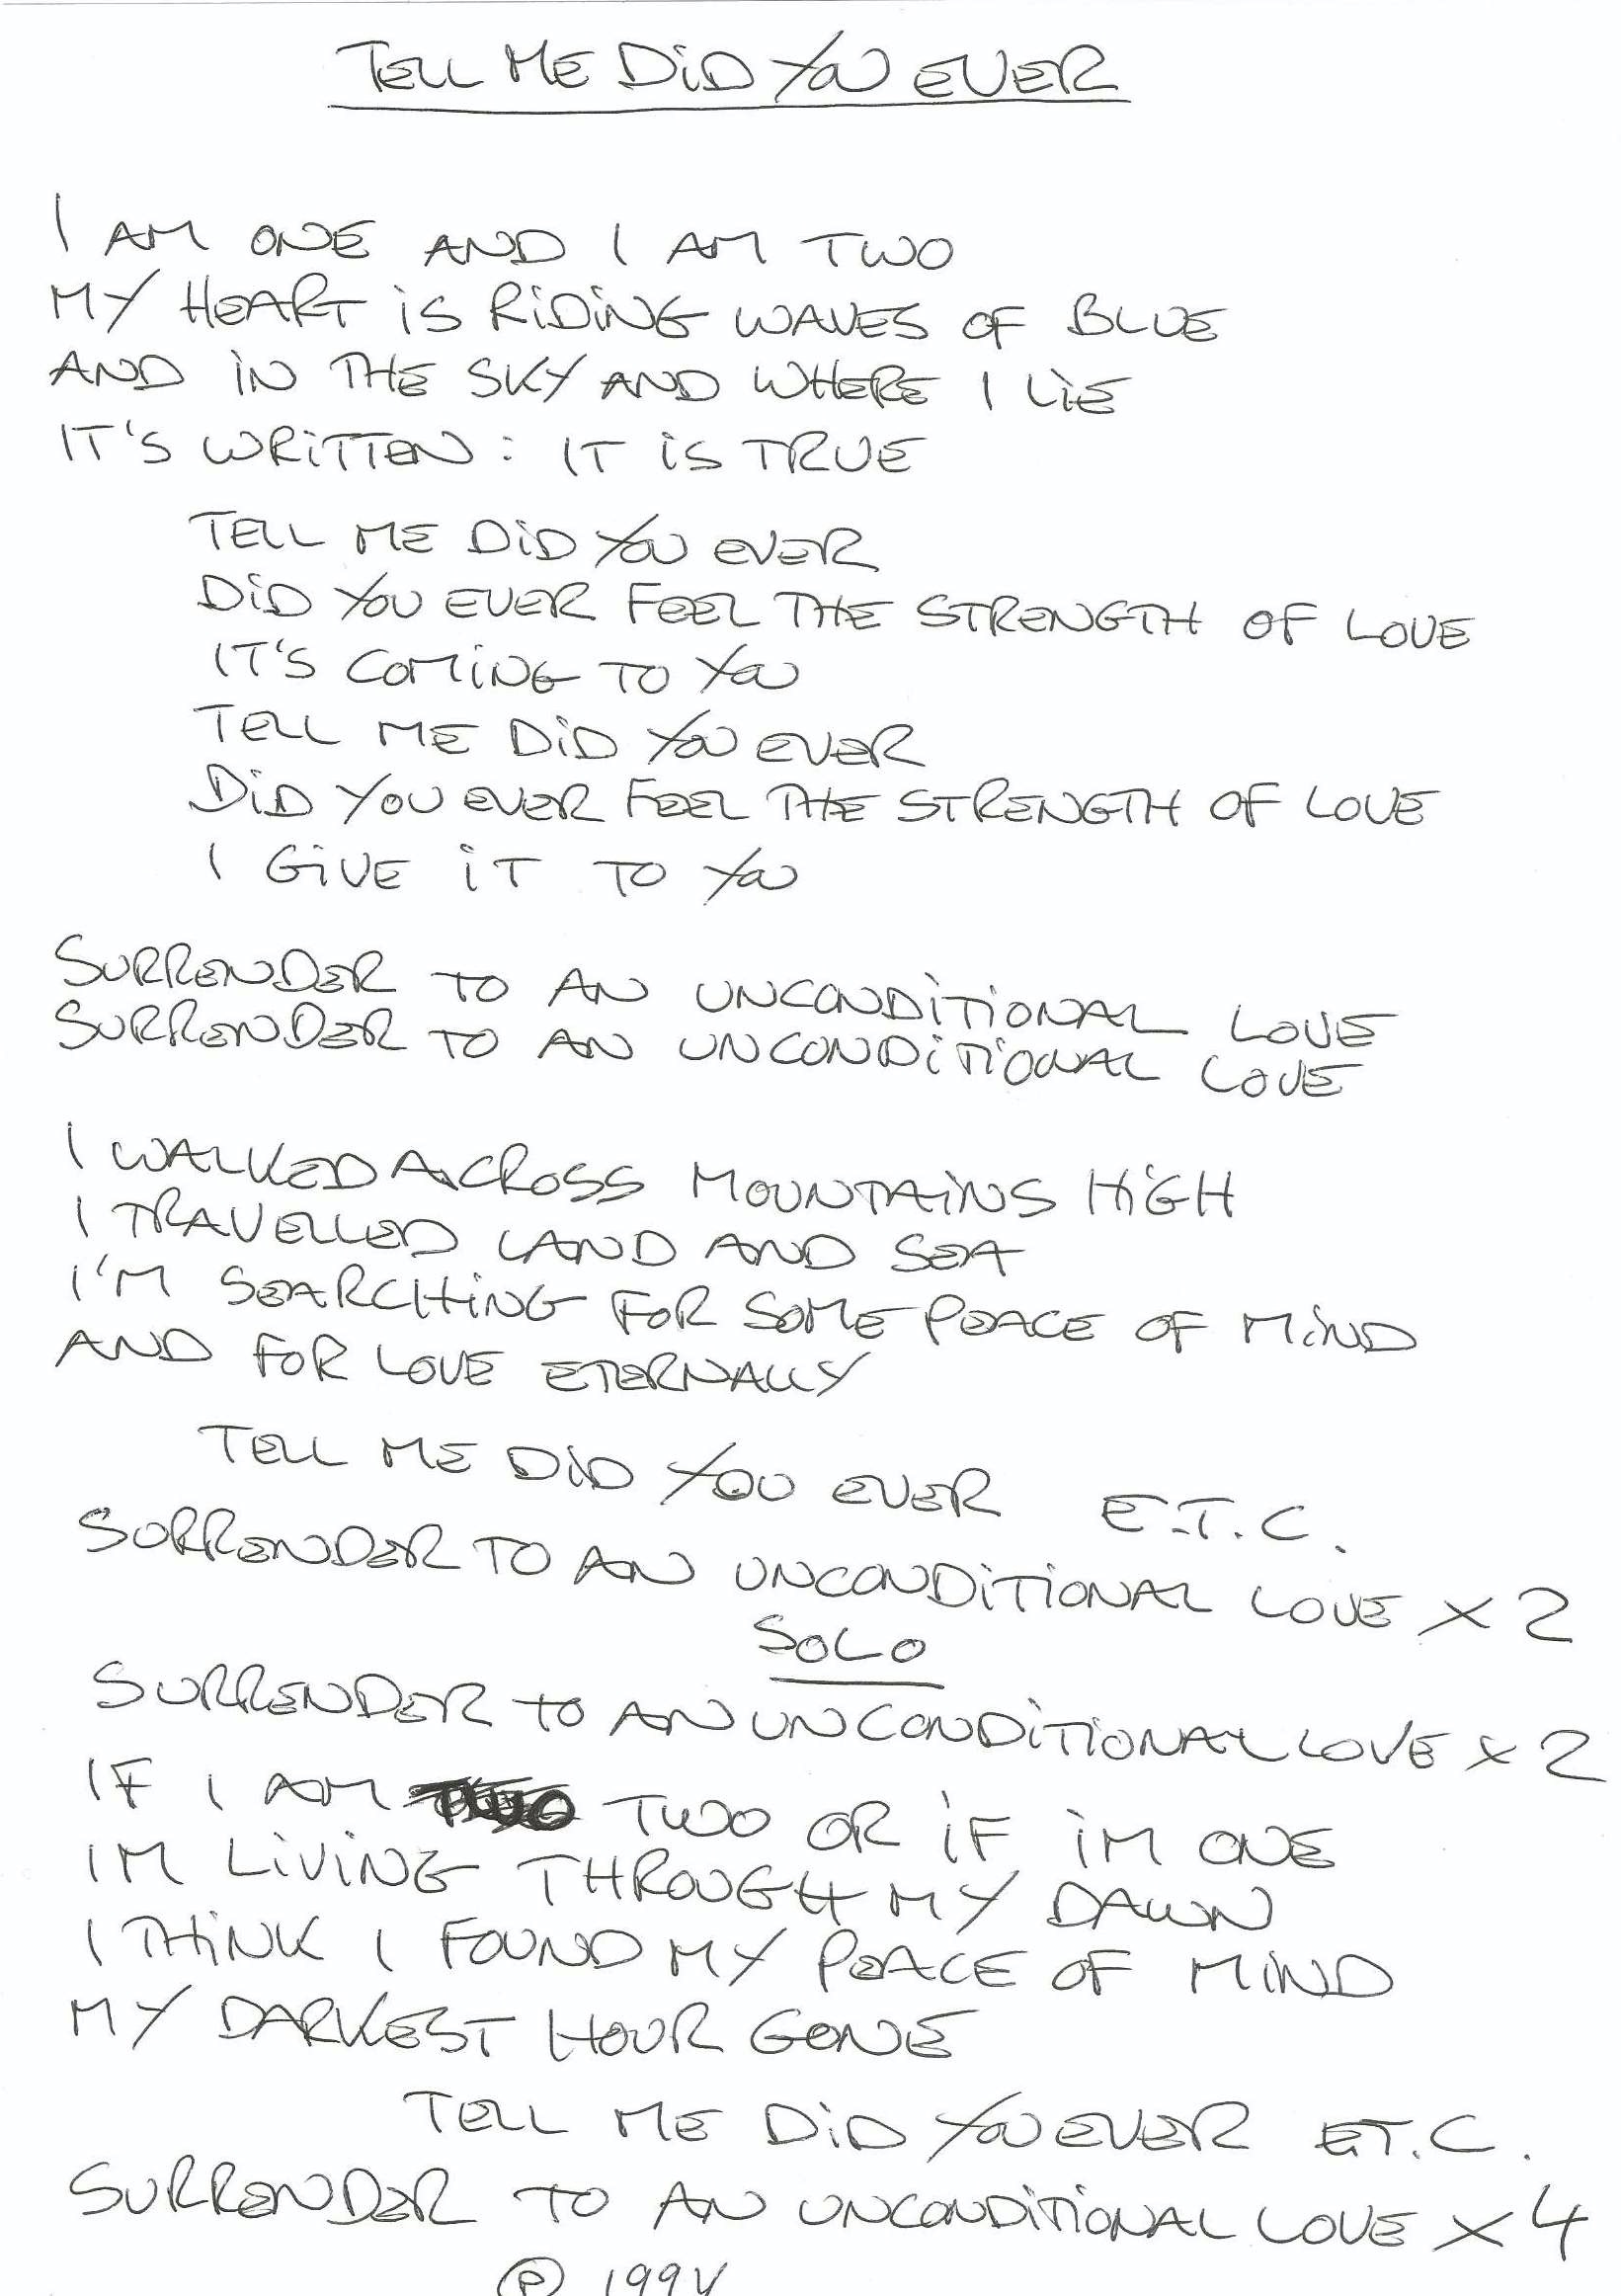 TELL ME DiD YOU EVER
I AM ONE AND I AM TWO
MY HEART iS RiDiNG WAVES OF BLUE
AND iN THE SKY AND WHERE I LiE
IT'S WRiTTEN : IT iS TRUE
TELL ME DiD YOU EVER
DiD YOU EVER FEEL THE STRENGTH OF LOVE
IT'S COMiNG TO YOU
TELL ME DiD YOU EVER
DiD YOU EVER FEEL THE STRENGTH OF LOVE
I GiVE iT TO YOU
SURRENDER TO AN UNCONDiTiONAL LOVE
SURRENDER TO AN UNCONDiTiONAL LOVE
I WALKED ACROSS MOUNTAiNS HiGH
I TRAVELLED LAND AND SEA
I'M SEARCHiNG FOR SOME PEACE OF MiND
AND FOR LOVE ETERNALLY
TELL ME DiD YOU EVER E.T.C.
SORRENDER TO AN UNCONDiTiONAL LOVE x 2
SOLO
SURRENDER TO AN UNCONDiTiONAL LOVE x 2
IF I AM TWO OR iF iM ONE
IM LiViNG THROUGH MY DAWN
I THiNK I FOUND MY PEACE OF MiND
MY DARKEST HOUR GONE
TELL ME DiD YOU EVER E.T.C.
SURRENDER TO AN UNCONDiTiONAL LOVE x 4
℗